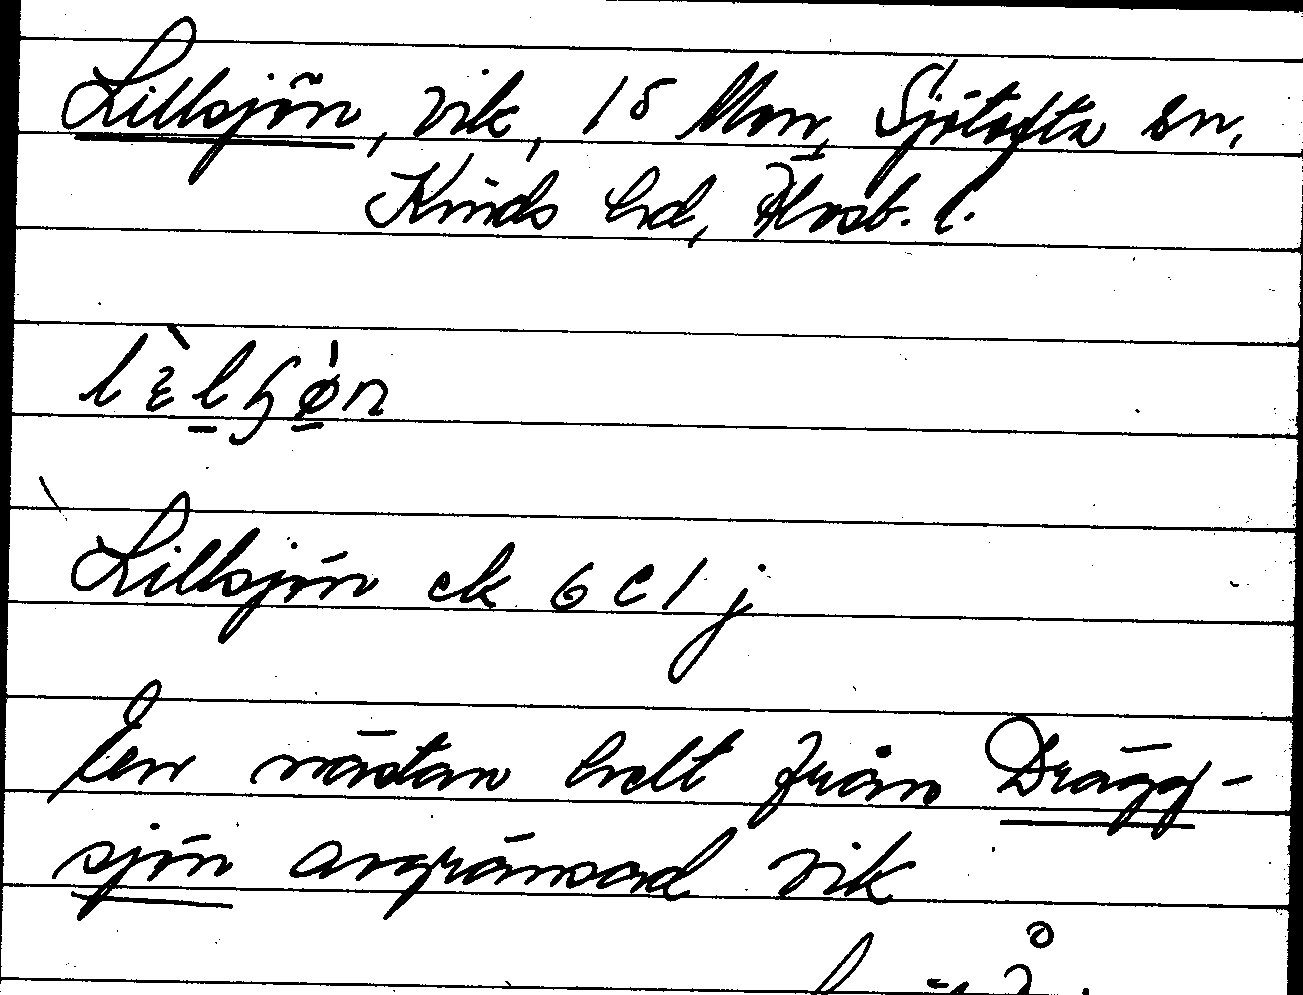 Lillsjön, vik, 18 Mon, Sjötofta sn,
Kinds hd, Älvsb. l.
Lillsjön ek 6 C 1 j
En nästan helt från Drägg-
sjön avgränsad vik